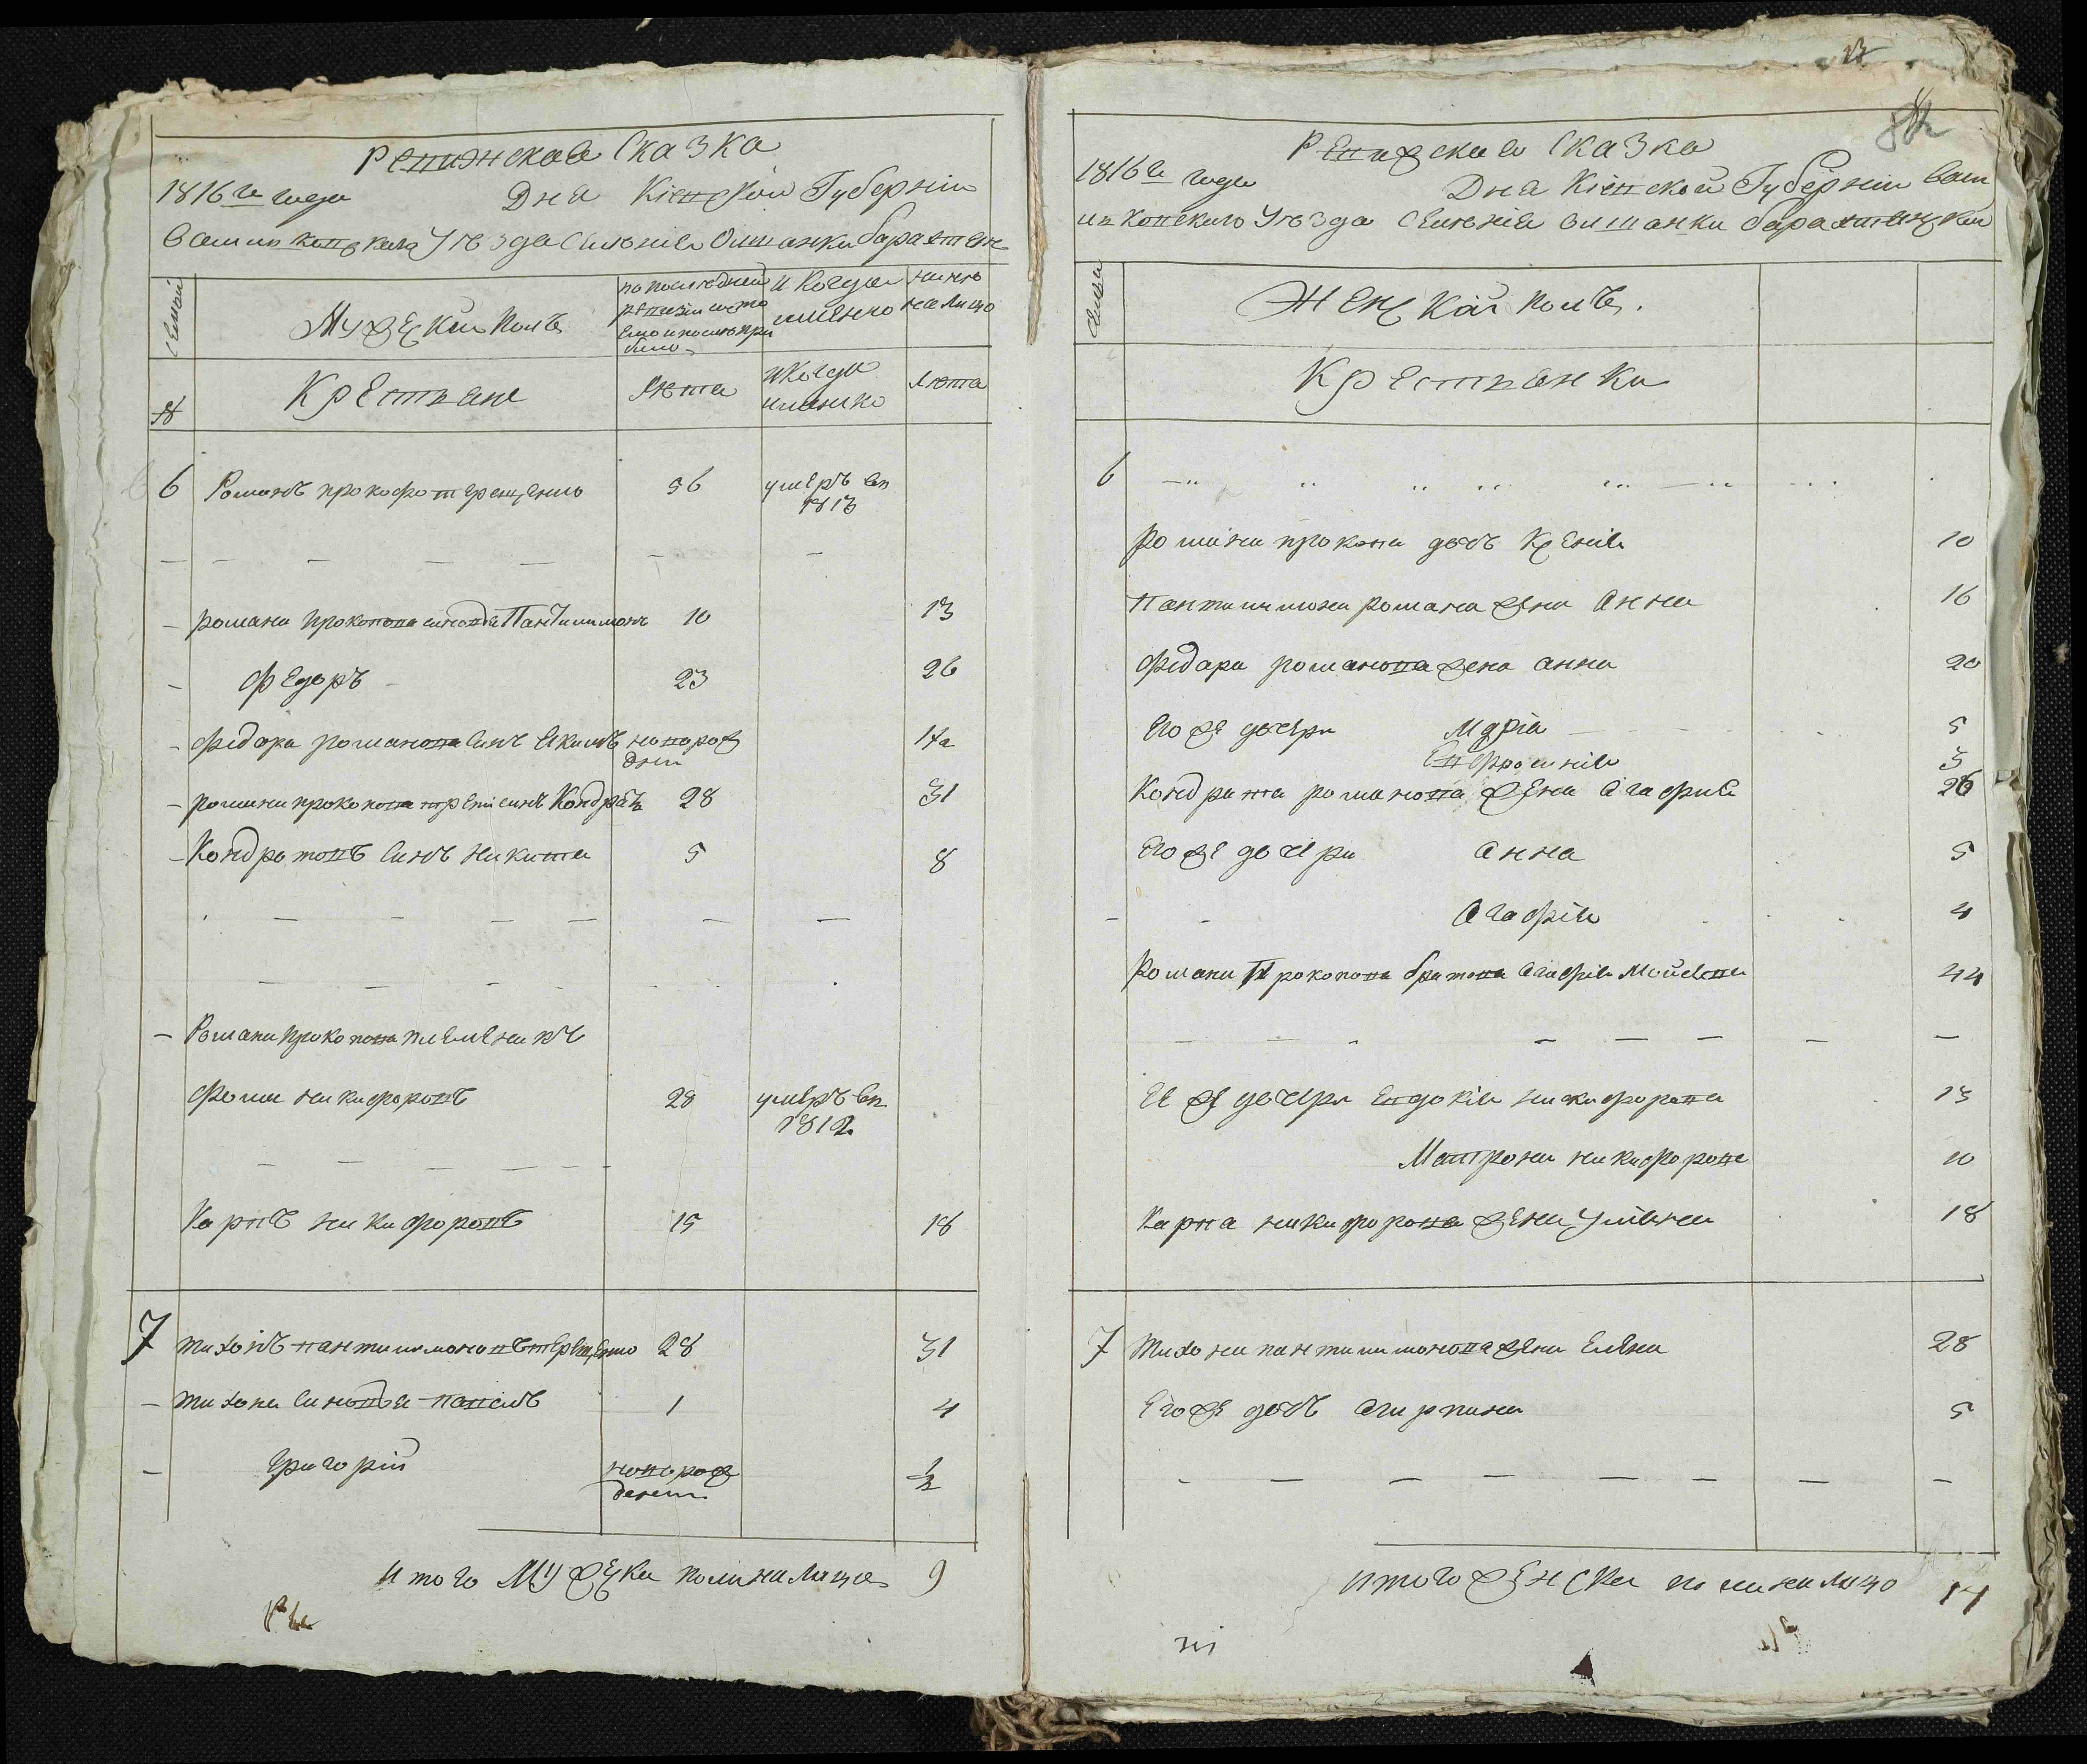 Ревижская Сказка
1816го года Дня Кіевской Губерніи
Васильковскаго Уѣзда Селенія Ольшанки баратин
Семьи
Мужескій полъ
по последней ревизіи состо
яло и после при
было
и когда
именно
ныне
на лицо
№
Крестьяне
Лѣта
и когда
именно
Лѣта
6 Романъ прокофо терещенко 56 умеръ въ
1813
романа прокопова синовья Пантилимонъ 10 13
Федоръ 23 26
Федора романова синъ Екимъ новорож
дни
романа прокопова третій синъ Кондратъ 28 31
Кондратовъ синъ Никита 5 8
Романа прокопова племеникъ
Фома никифоровъ 28 умеръ въ
1812
Карпъ никифоровъ 15 18
7 тихонъ пантилимоновъ терещенко 28 31
тихона синовья павелъ 1 4
григорій новорож
денни
1/2
итого Мужеска пола на лицо 9
Ревижская Сказка
1816го года Дня Кіевской Губерніи Васи
льковскаго Уѣзда Селенія Ольшанки баратинской
Семьи
Женской полъ.
Крестьянки
6
романа прокопа дочь Ксенія 10
Пантилимона романа жена Анна 16
Федора романова жена анна 20
Его же дочери Марія 5
Евфросинія 3
Кондрата романова жена Агафия 26
Его же дочери Анна 5
Агафія 4
Романа Прокопова братова Агафія Мойсева 44
Ее же дочери Евдокія никифорова 13
Матрона никифорова 10
Карпа никифорова жена Уліана 18
7 Тихона пантилимонова жена Елена 28
Его же дочь Агирпина 5
итого женска пола на лицо 14